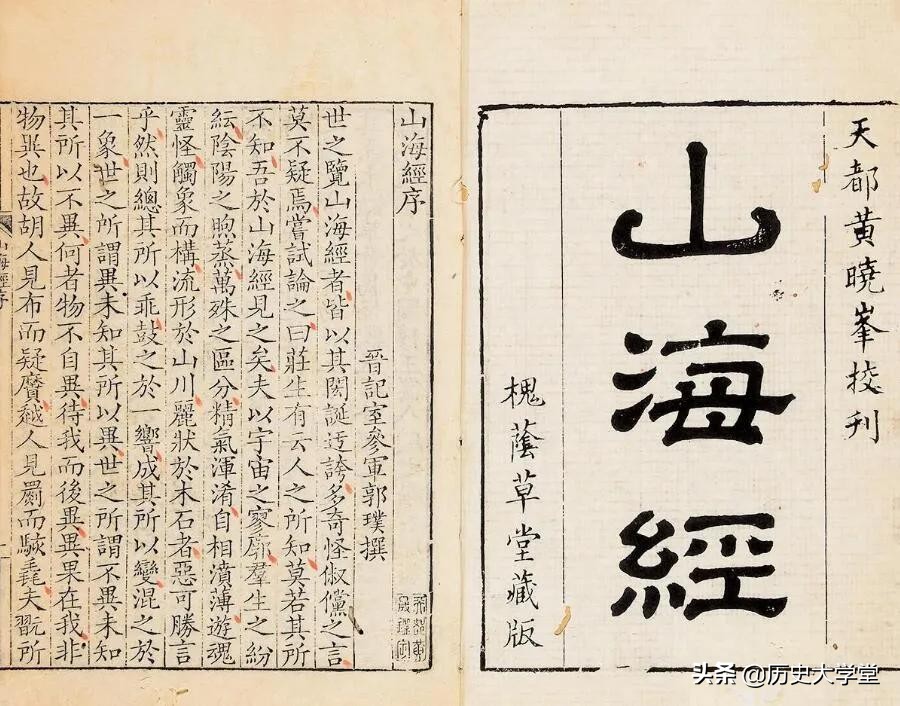 天都黄曉峯挍刊
山海經
槐蔭草堂藏版
山海經序
晉記室參軍郭璞撰
世之覽山海經者皆以其閎誕迂誇多奇怪俶儻之言
莫不疑焉嘗試論之曰莊生有云人之所知莫若其所
不知吾於山海經見之矣夫以宇宙之寥廓羣生之紛
紜陰陽之煦蒸萬殊之區分精氣渾淆自相濆薄遊魂
靈怪觸象而構流形於山川麗狀於木石者惡可勝言
乎然則總其所以乖鼓之於一響成其所以變混之於
一象世之所謂異未知其所以異世之所謂不異未知
其所以不異何者物不自異待我而後異異果在我非
物異也故胡人見布而疑黂越人見罽而駭毳夫翫所
山海經序
头条 @历史大学堂